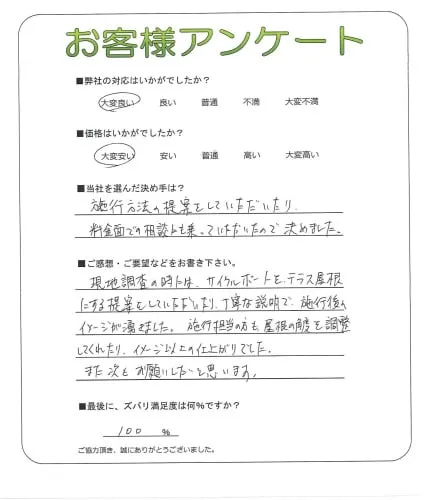 お客様アンケート
■弊社の対応はいかがでしたか？
大変良い 良い 普通 不満 大変不満
■価格はいかがでしたか？
大変安い 安い 普通 高い 大変高い
■当社を選んだ決め手は？
施行方法の提案をしていただいたり、
料金面での相談にも乗っていただいたので決めました。
■ご感想・ご要望などをお書き下さい。
現地調査の時には、サイクルポートを、テラス屋根
にする提案をしていただいたり、丁寧な説明で、施行後の
イメージが湧きました。施行担当の方も、屋根の角度を調整
してくれたり、イメージ以上の仕上がりでした。
また次もお願いしたいと思います。
■最後に、ズバリ満足度は何％ですか？
100 ％
ご協力頂き、誠にありがとうございました。